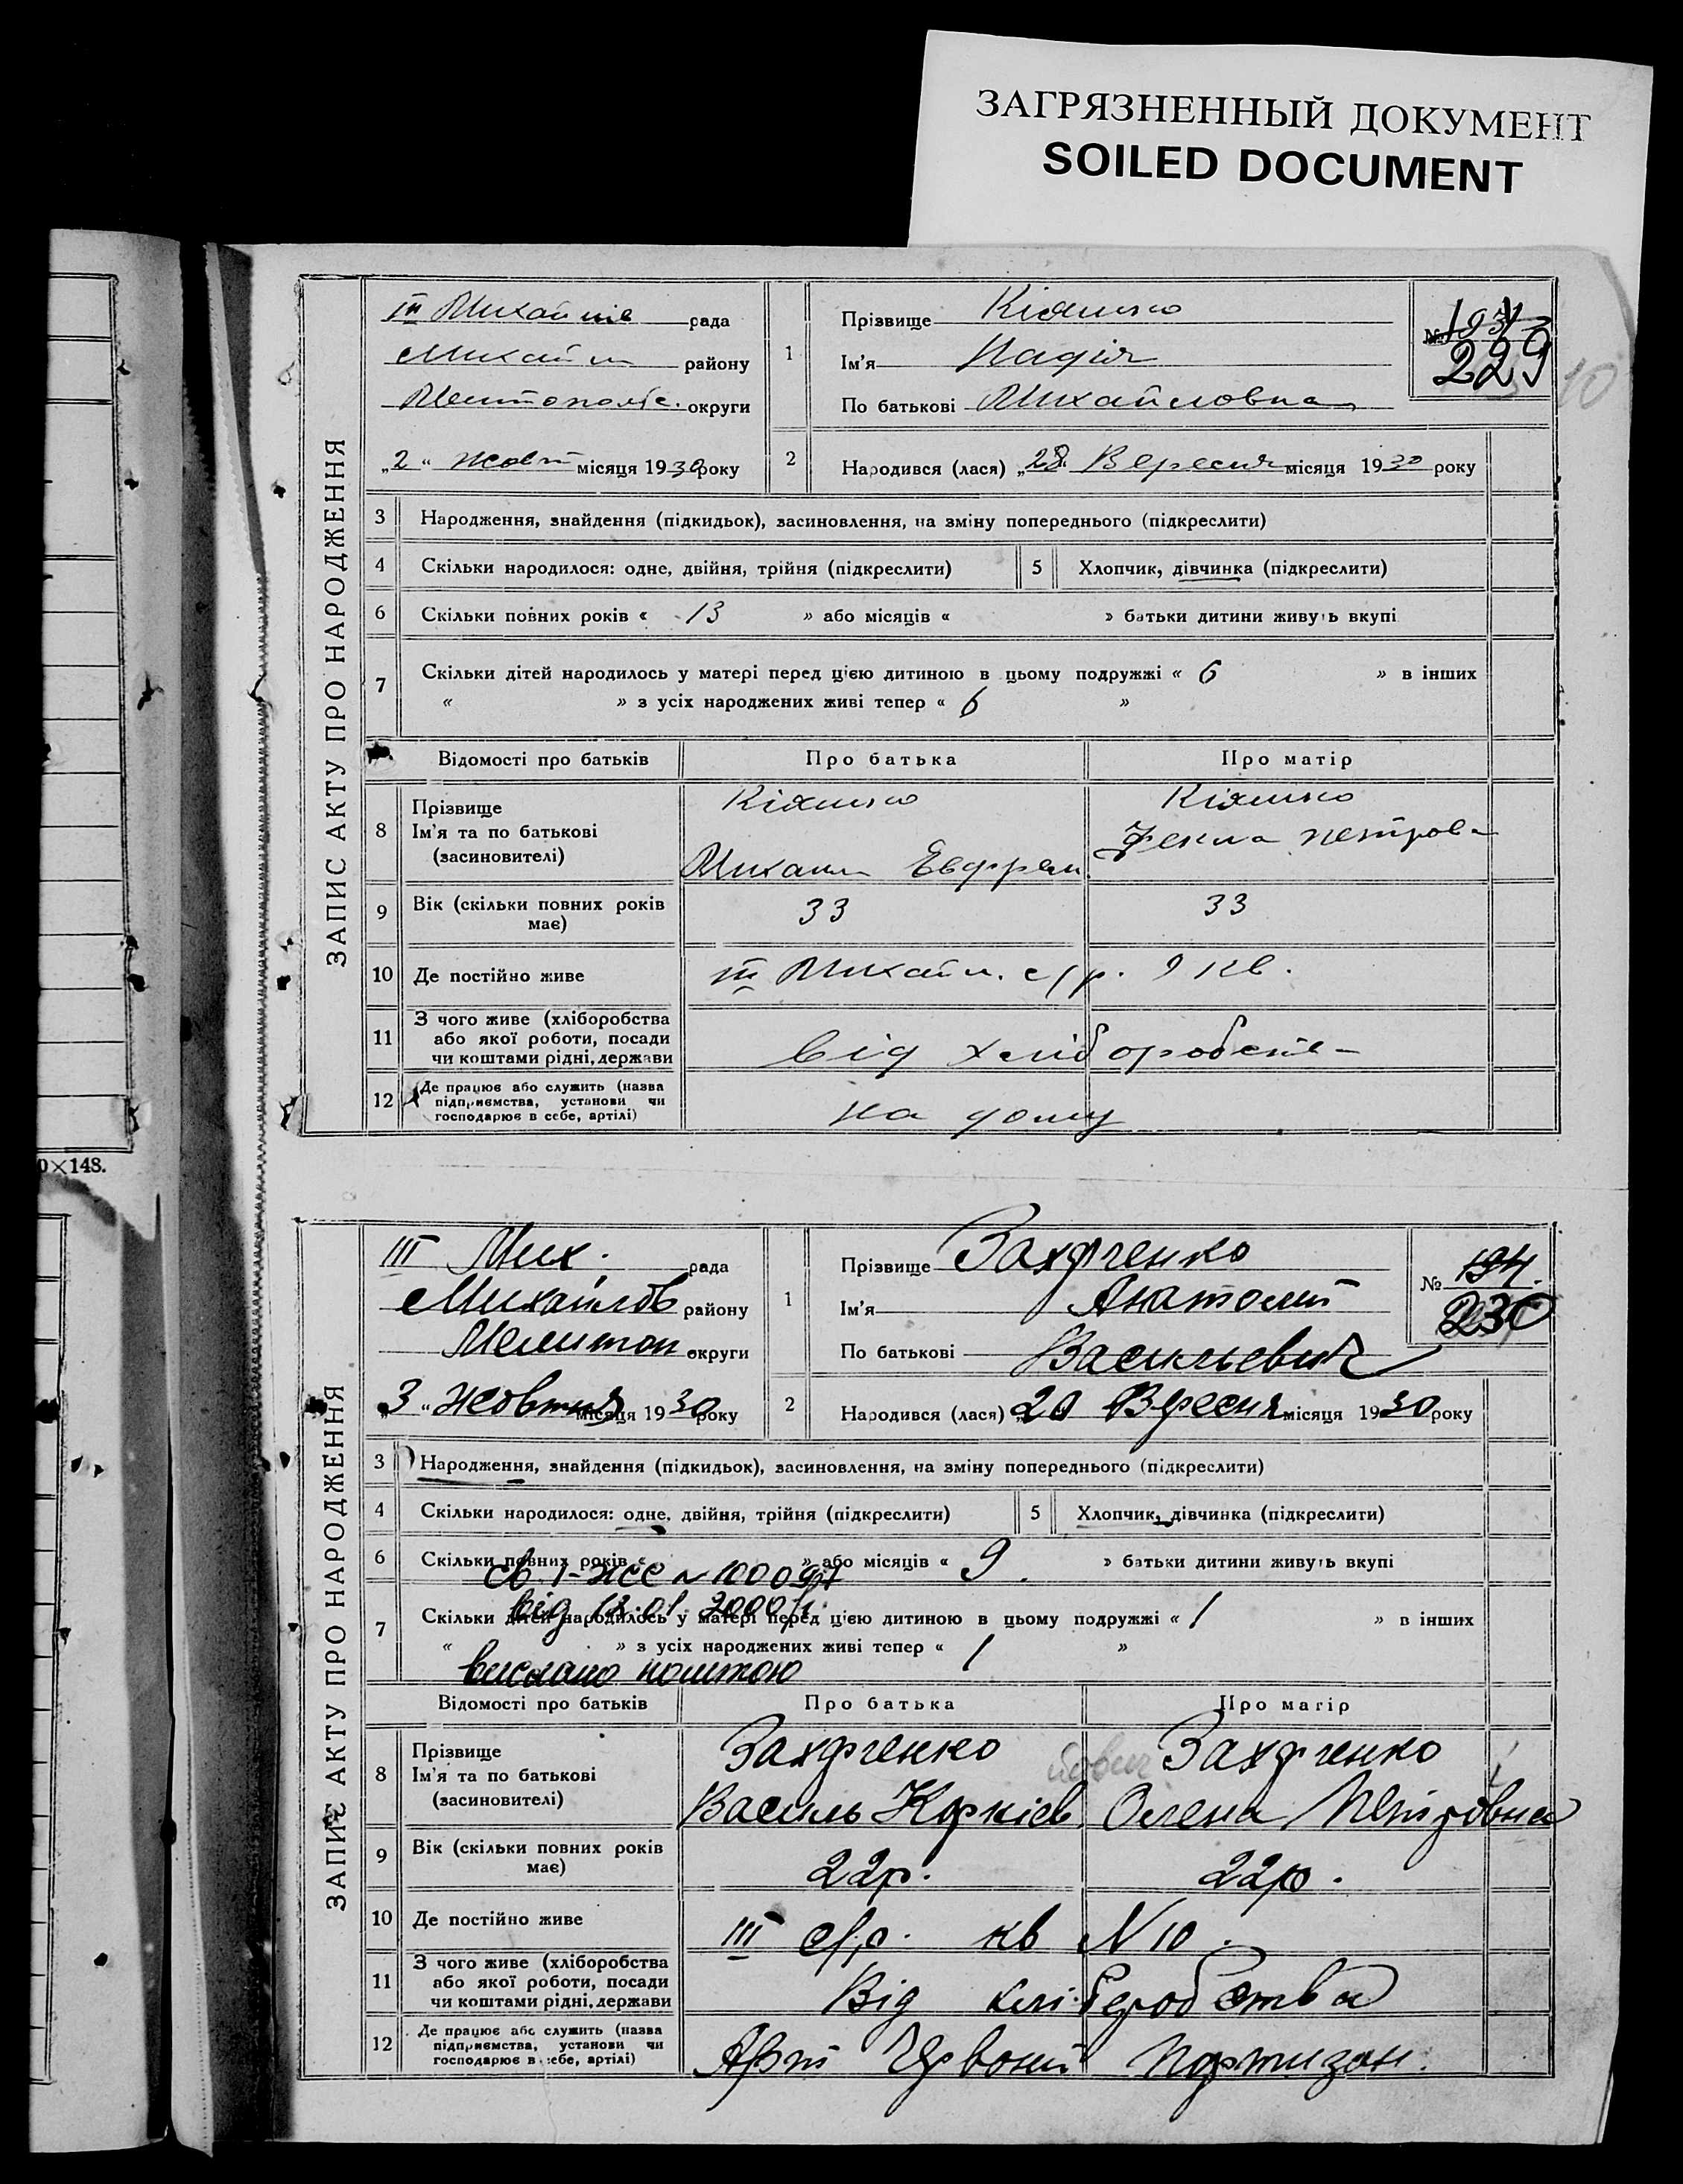 ЗАГРЯЗНЕННЫЙ ДОКУМЕНТ
SOILED DOCUMENT
ЗАПИС АКТУ ПРО НАРОДЖЕННЯ
III рада
району
округи
„2“ жовт місяця 1930 року
1
Прізвище Кіяшко
Ім'я Надія
По батькові Михайловна
№
229
10
2 Народився (лася) „28“ Вересня місяця 1930 року
3 Народження, знайдення (підкидьок), засиновлення, на зміну попереднього (підкреслити)
4 Скільки народилося: одне, двійня, трійня (підкреслити) 5 Хлопчик, дівчинка (підкреслити)
6 Скільки повних років « 13 » або місяців « » батьки дитини живуть вкупі
7 Скільки дітей народилось у матері перед цією дитиною в цьому подружжі « 6 » в інших
« » з усіх народжених живі тепер « 6 »
Відомості про батьків Про батька Про матір
8 Прізвище
Ім'я та по батькові
(засиновителі)
Кіяшко
Михаил
Кіяшко
Фекла Петровна
9 Вік (скільки повних років
має)
33 33
10 Де постійно живе III Михайл. с/р. 9 кв.
11 З чого живе (хліборобства
або якої роботи, посади
чи коштами рідні, держави
від хліборобств
12 Де працює або служить (назва
підприємства, установи чи
господарює в себе, артілі)
на дому
0×148.
ЗАПИС АКТУ ПРО НАРОДЖЕННЯ
III Мих. рада
Михайлов району
Мелитоп округи
„3“ жовтня місяця 1930 року
1
Прізвище Захарченко
Ім'я Анатолій
По батькові Васильевич
№ 194.
230
2 Народився (лася) „20 Вересня місяця 1930 року
3 Народження, знайдення (підкидьок), засиновлення, на зміну попереднього (підкреслити)
4 Скільки народилося: одне, двійня, трійня (підкреслити) 5 Хлопчик, дівчинка (підкреслити)
6 Скільки повних років « » або місяців « 9. » батьки дитини живуть вкупі
св. I-ЖС №
7 Скільки дітей народилось у матері перед цією дитиною в цьому подружжі « 1 » в інших
від 13.01.2000
« » з усіх народжених живі тепер « 1 »
вислано поштою
Відомості про батьків Про батька Про матір
8 Прізвище
Ім'я та по батькові
(засиновителі)
Захарченко
Василь
Захарченко
Олена Петровна
9 Вік (скільки повних років
має)
22р. 22р.
10 Де постійно живе III с/р. кв N 10.
11 З чого живе (хліборобства
або якої роботи, посади
чи коштами рідні, держави
Від хліборобства
12 Де працює або служить (назва
підприємства, установи чи
господарює в себе, артілі)
Арт Червоний Партизан.